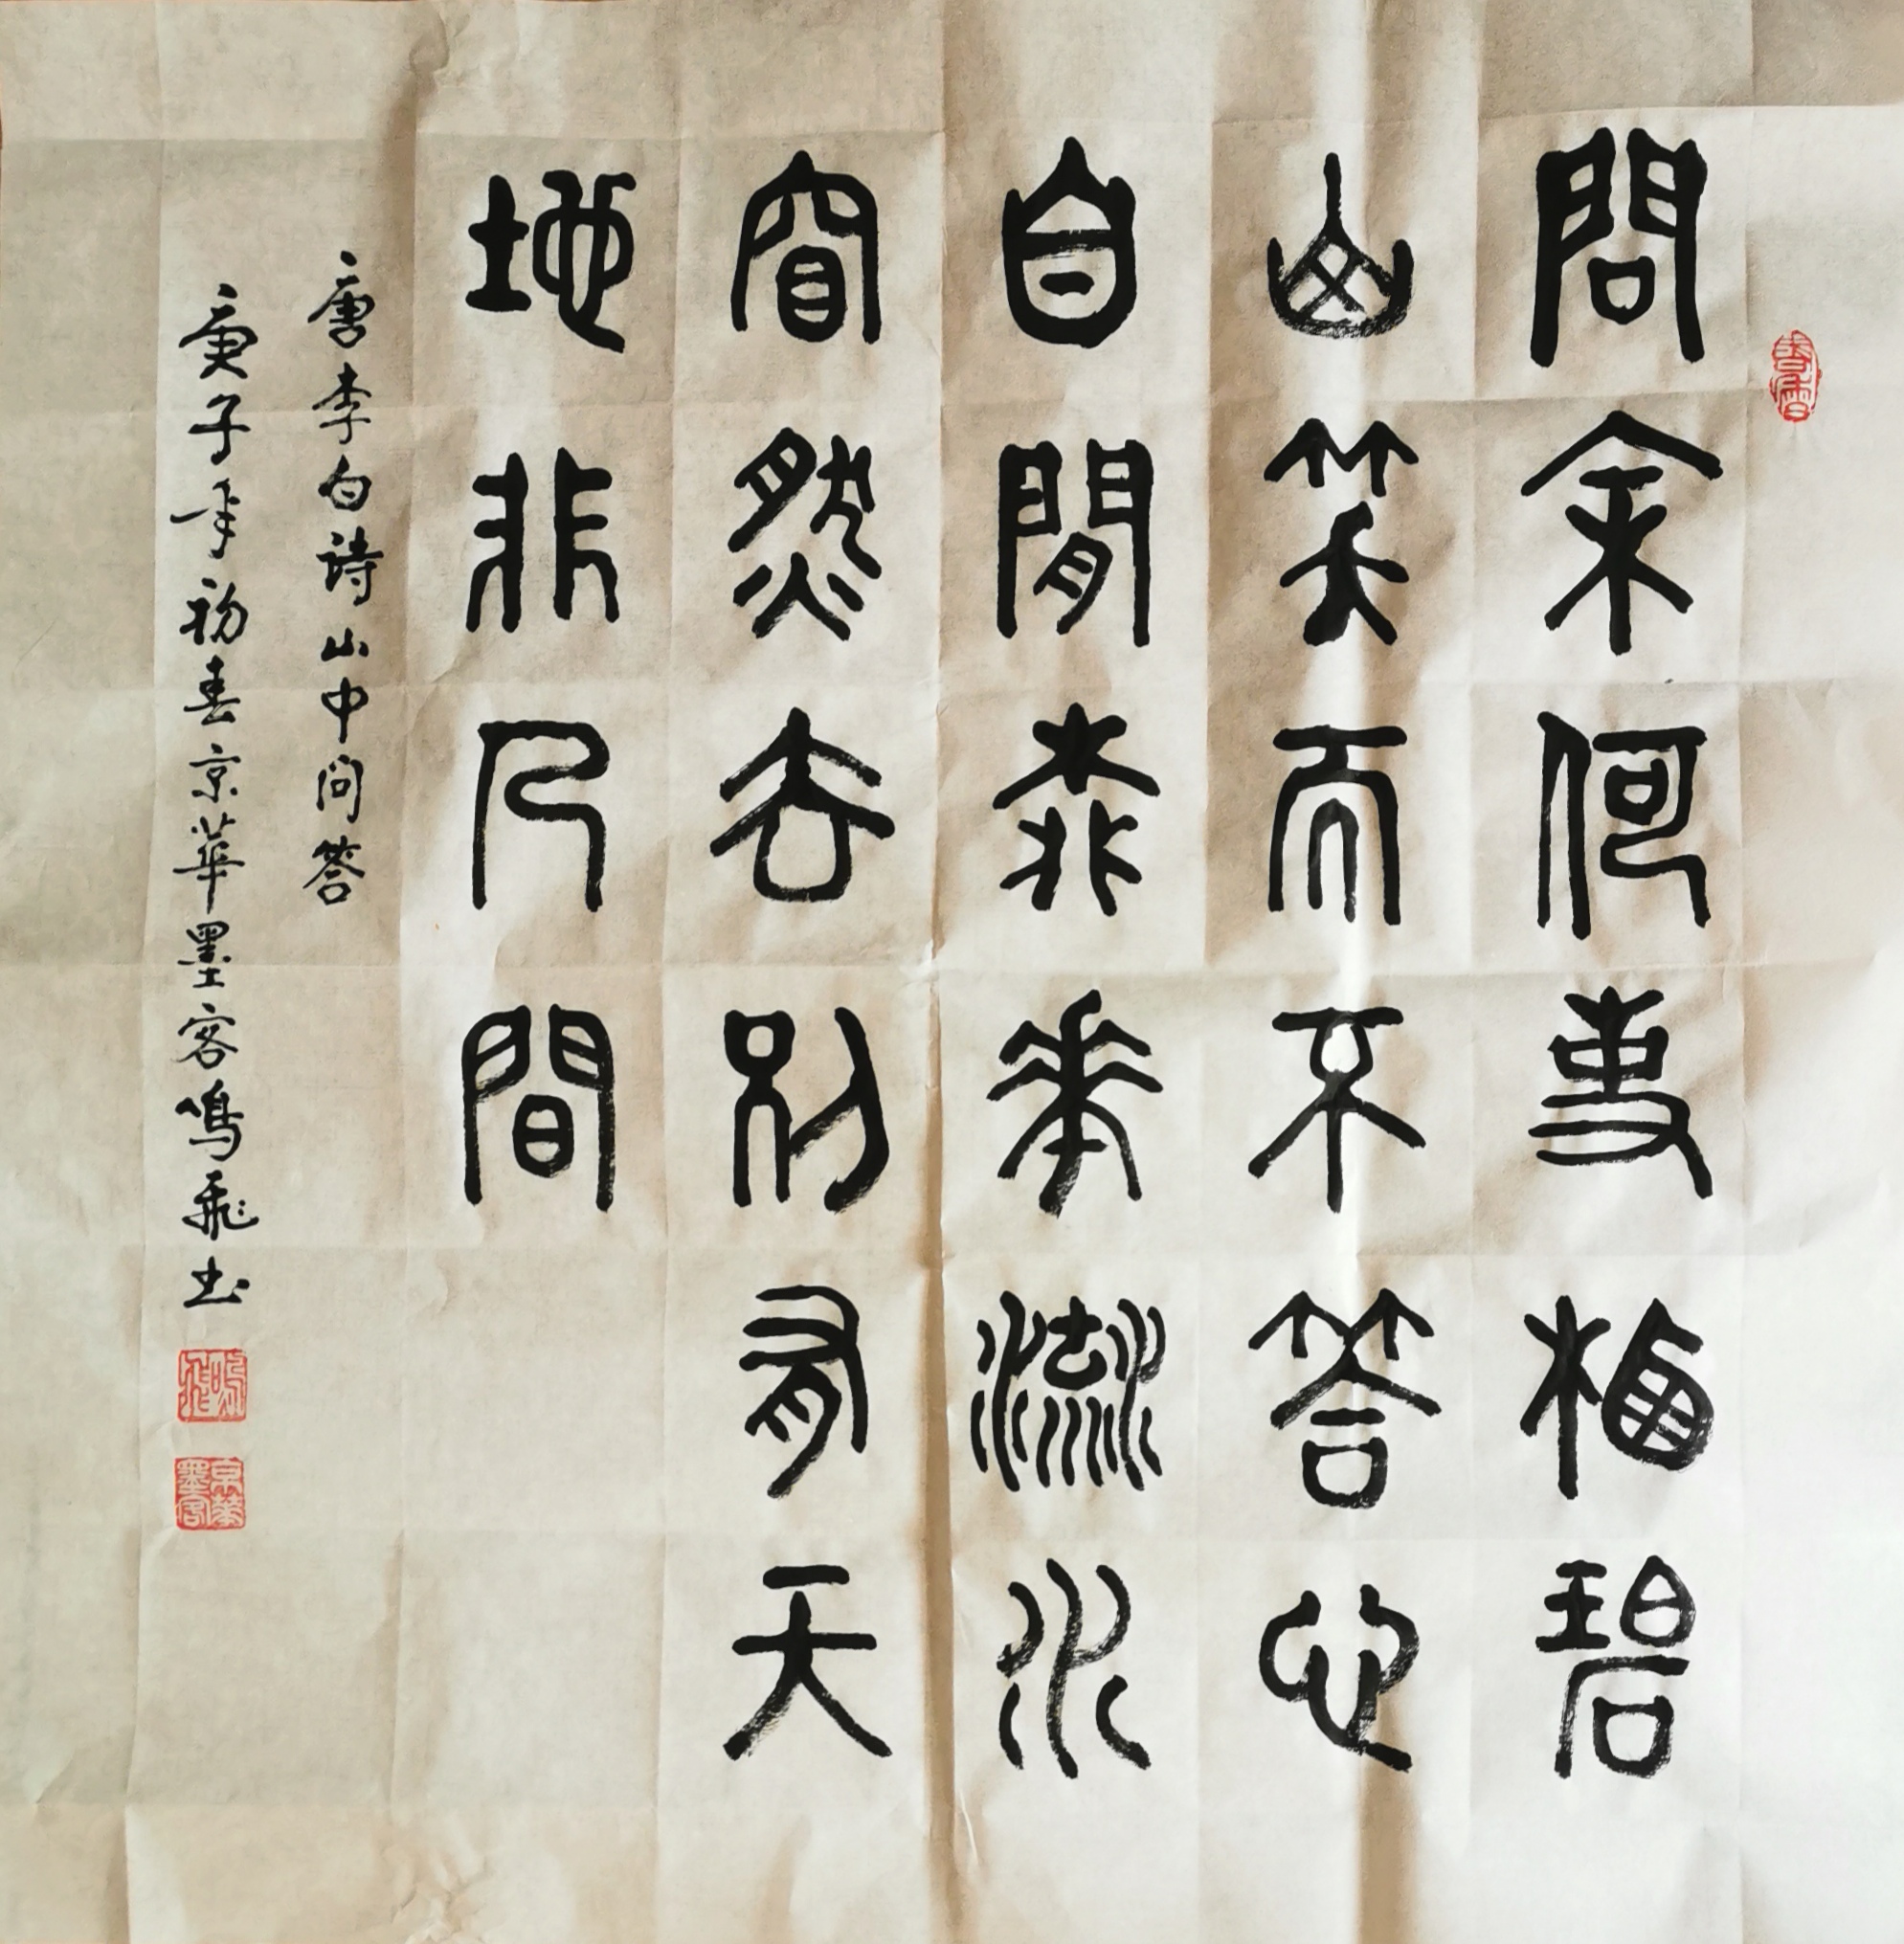 問余何事栖碧
山笑而不答心
自閒桃花流水
窅然去別有天
地非人間
唐李白詩山中问答
庚子年初春京華墨客鳴飛书
鳴飛
京華墨客